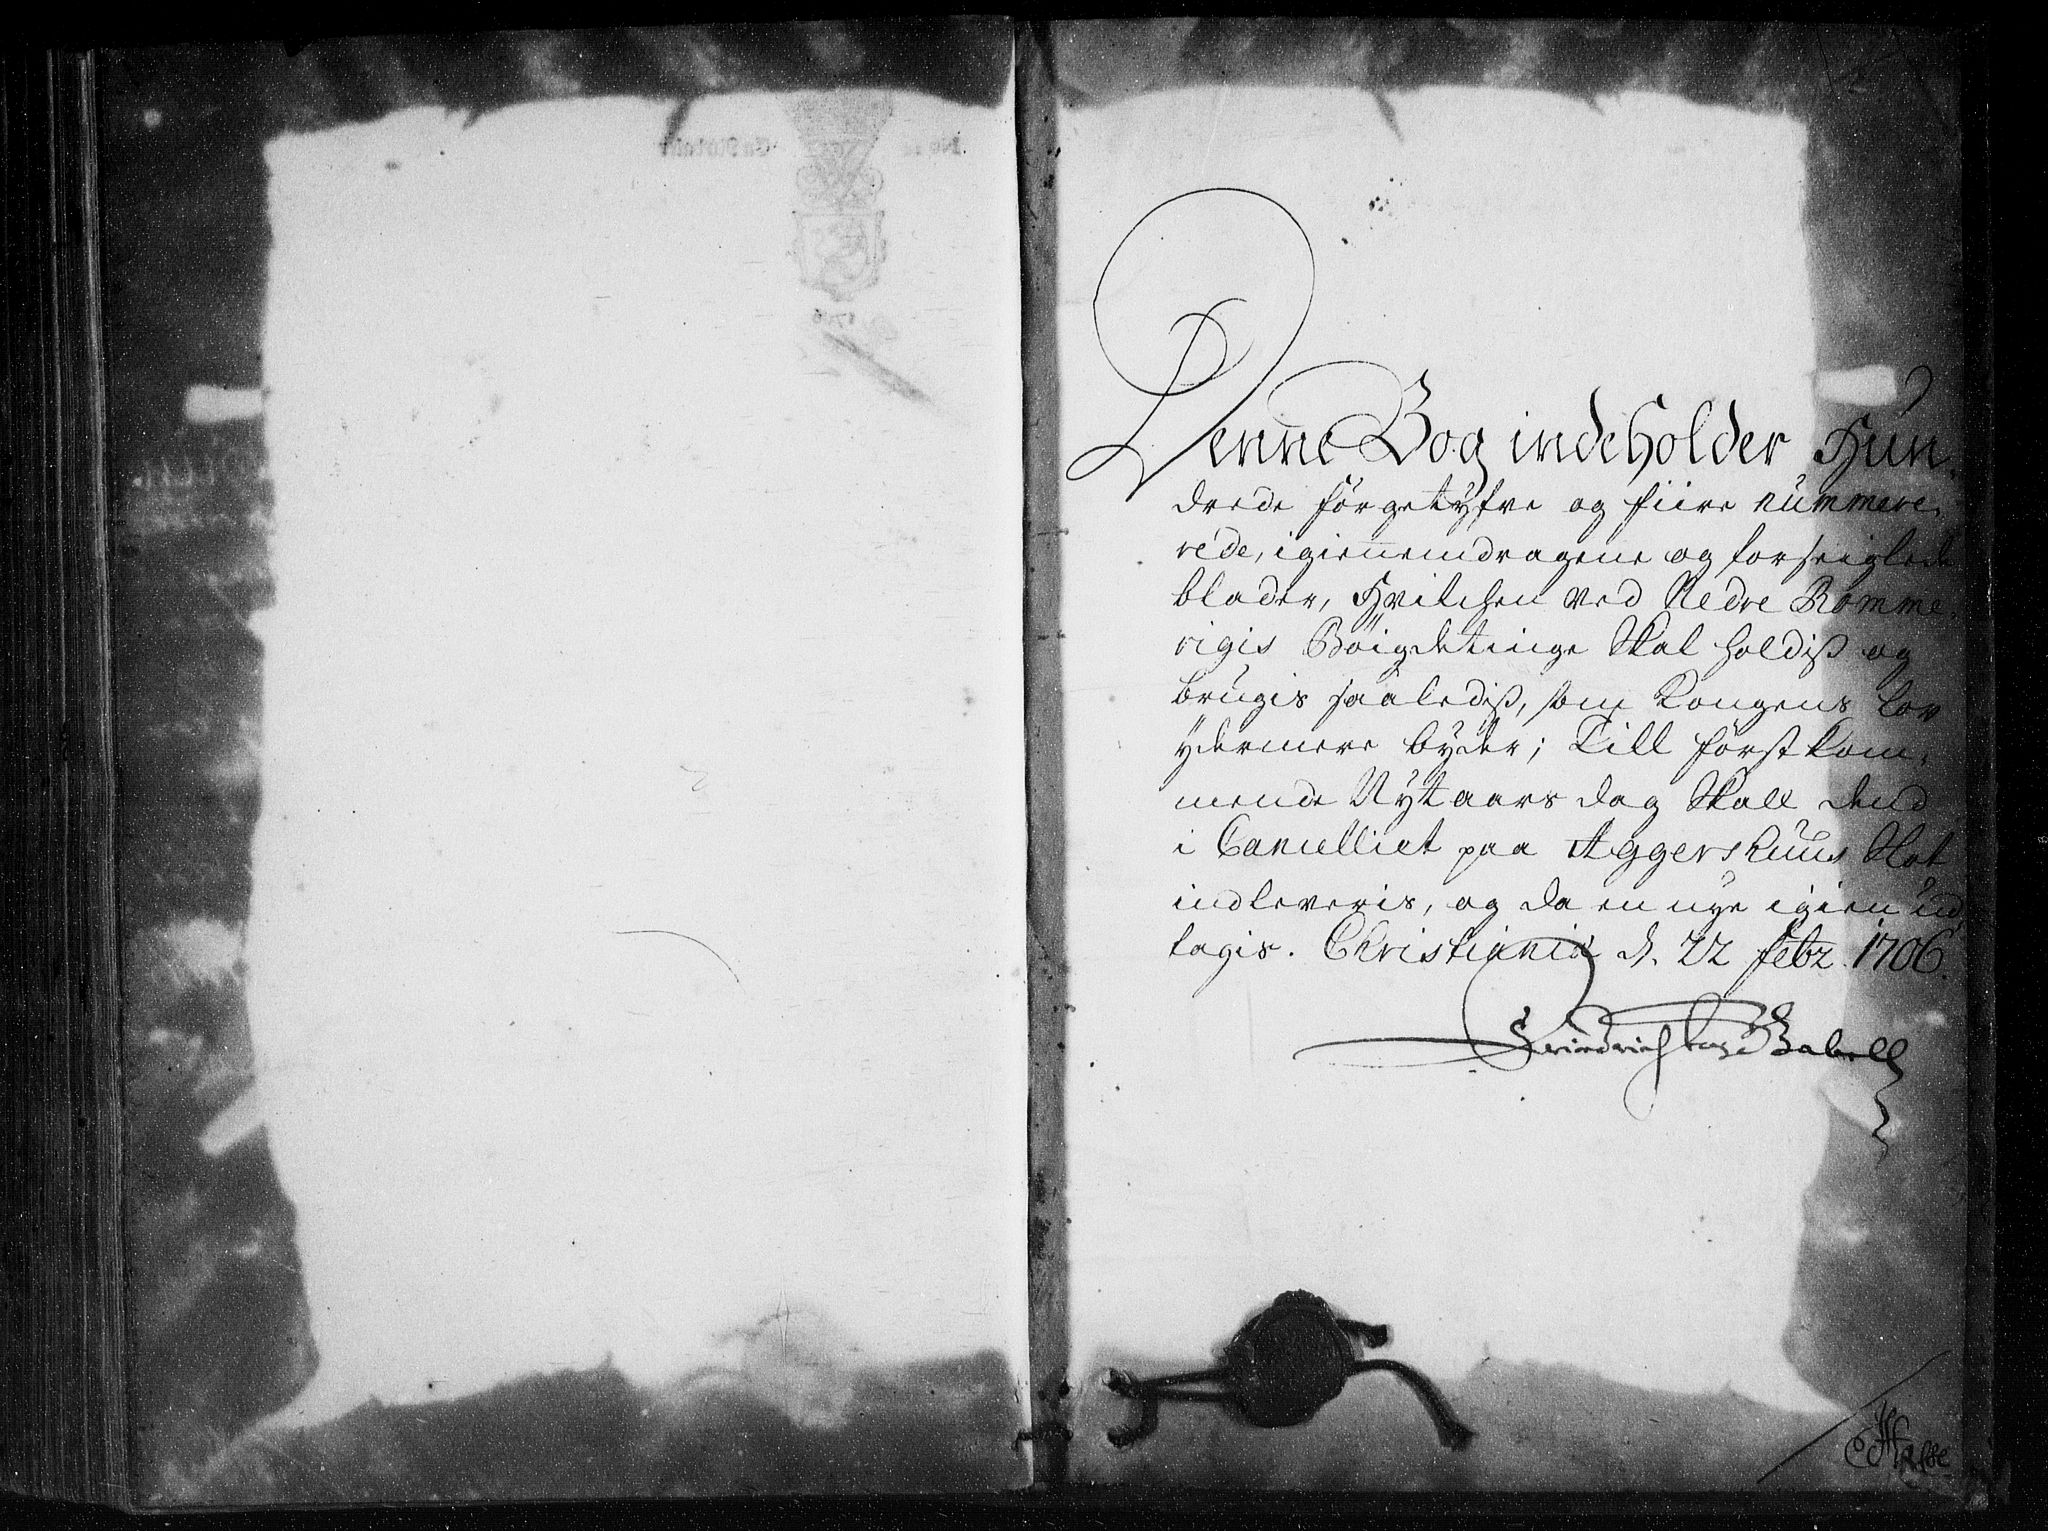 Denne Bog indeholder Hun-
drede førgetyfve og fiire nummere-
rede, igiennemdragene og forseiglede
blader, Hvilchen ved Nedre Romme-
rigis Bøigdetinge Skal holdiß og
brugis saalediß, som Kongens Lov
ydermere byder; Till først kom-
mende Nytaars dag Skall dend
i Cancelliet paa Aggershuus Slot
indleveris, og da en nye igien ud
tagis. Christiania d. 22 febr. 1706.